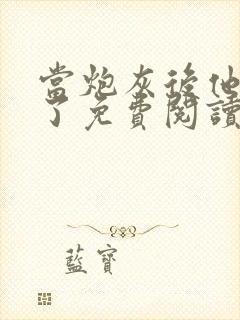 當炮灰後他
了免費閱讀
藍寶